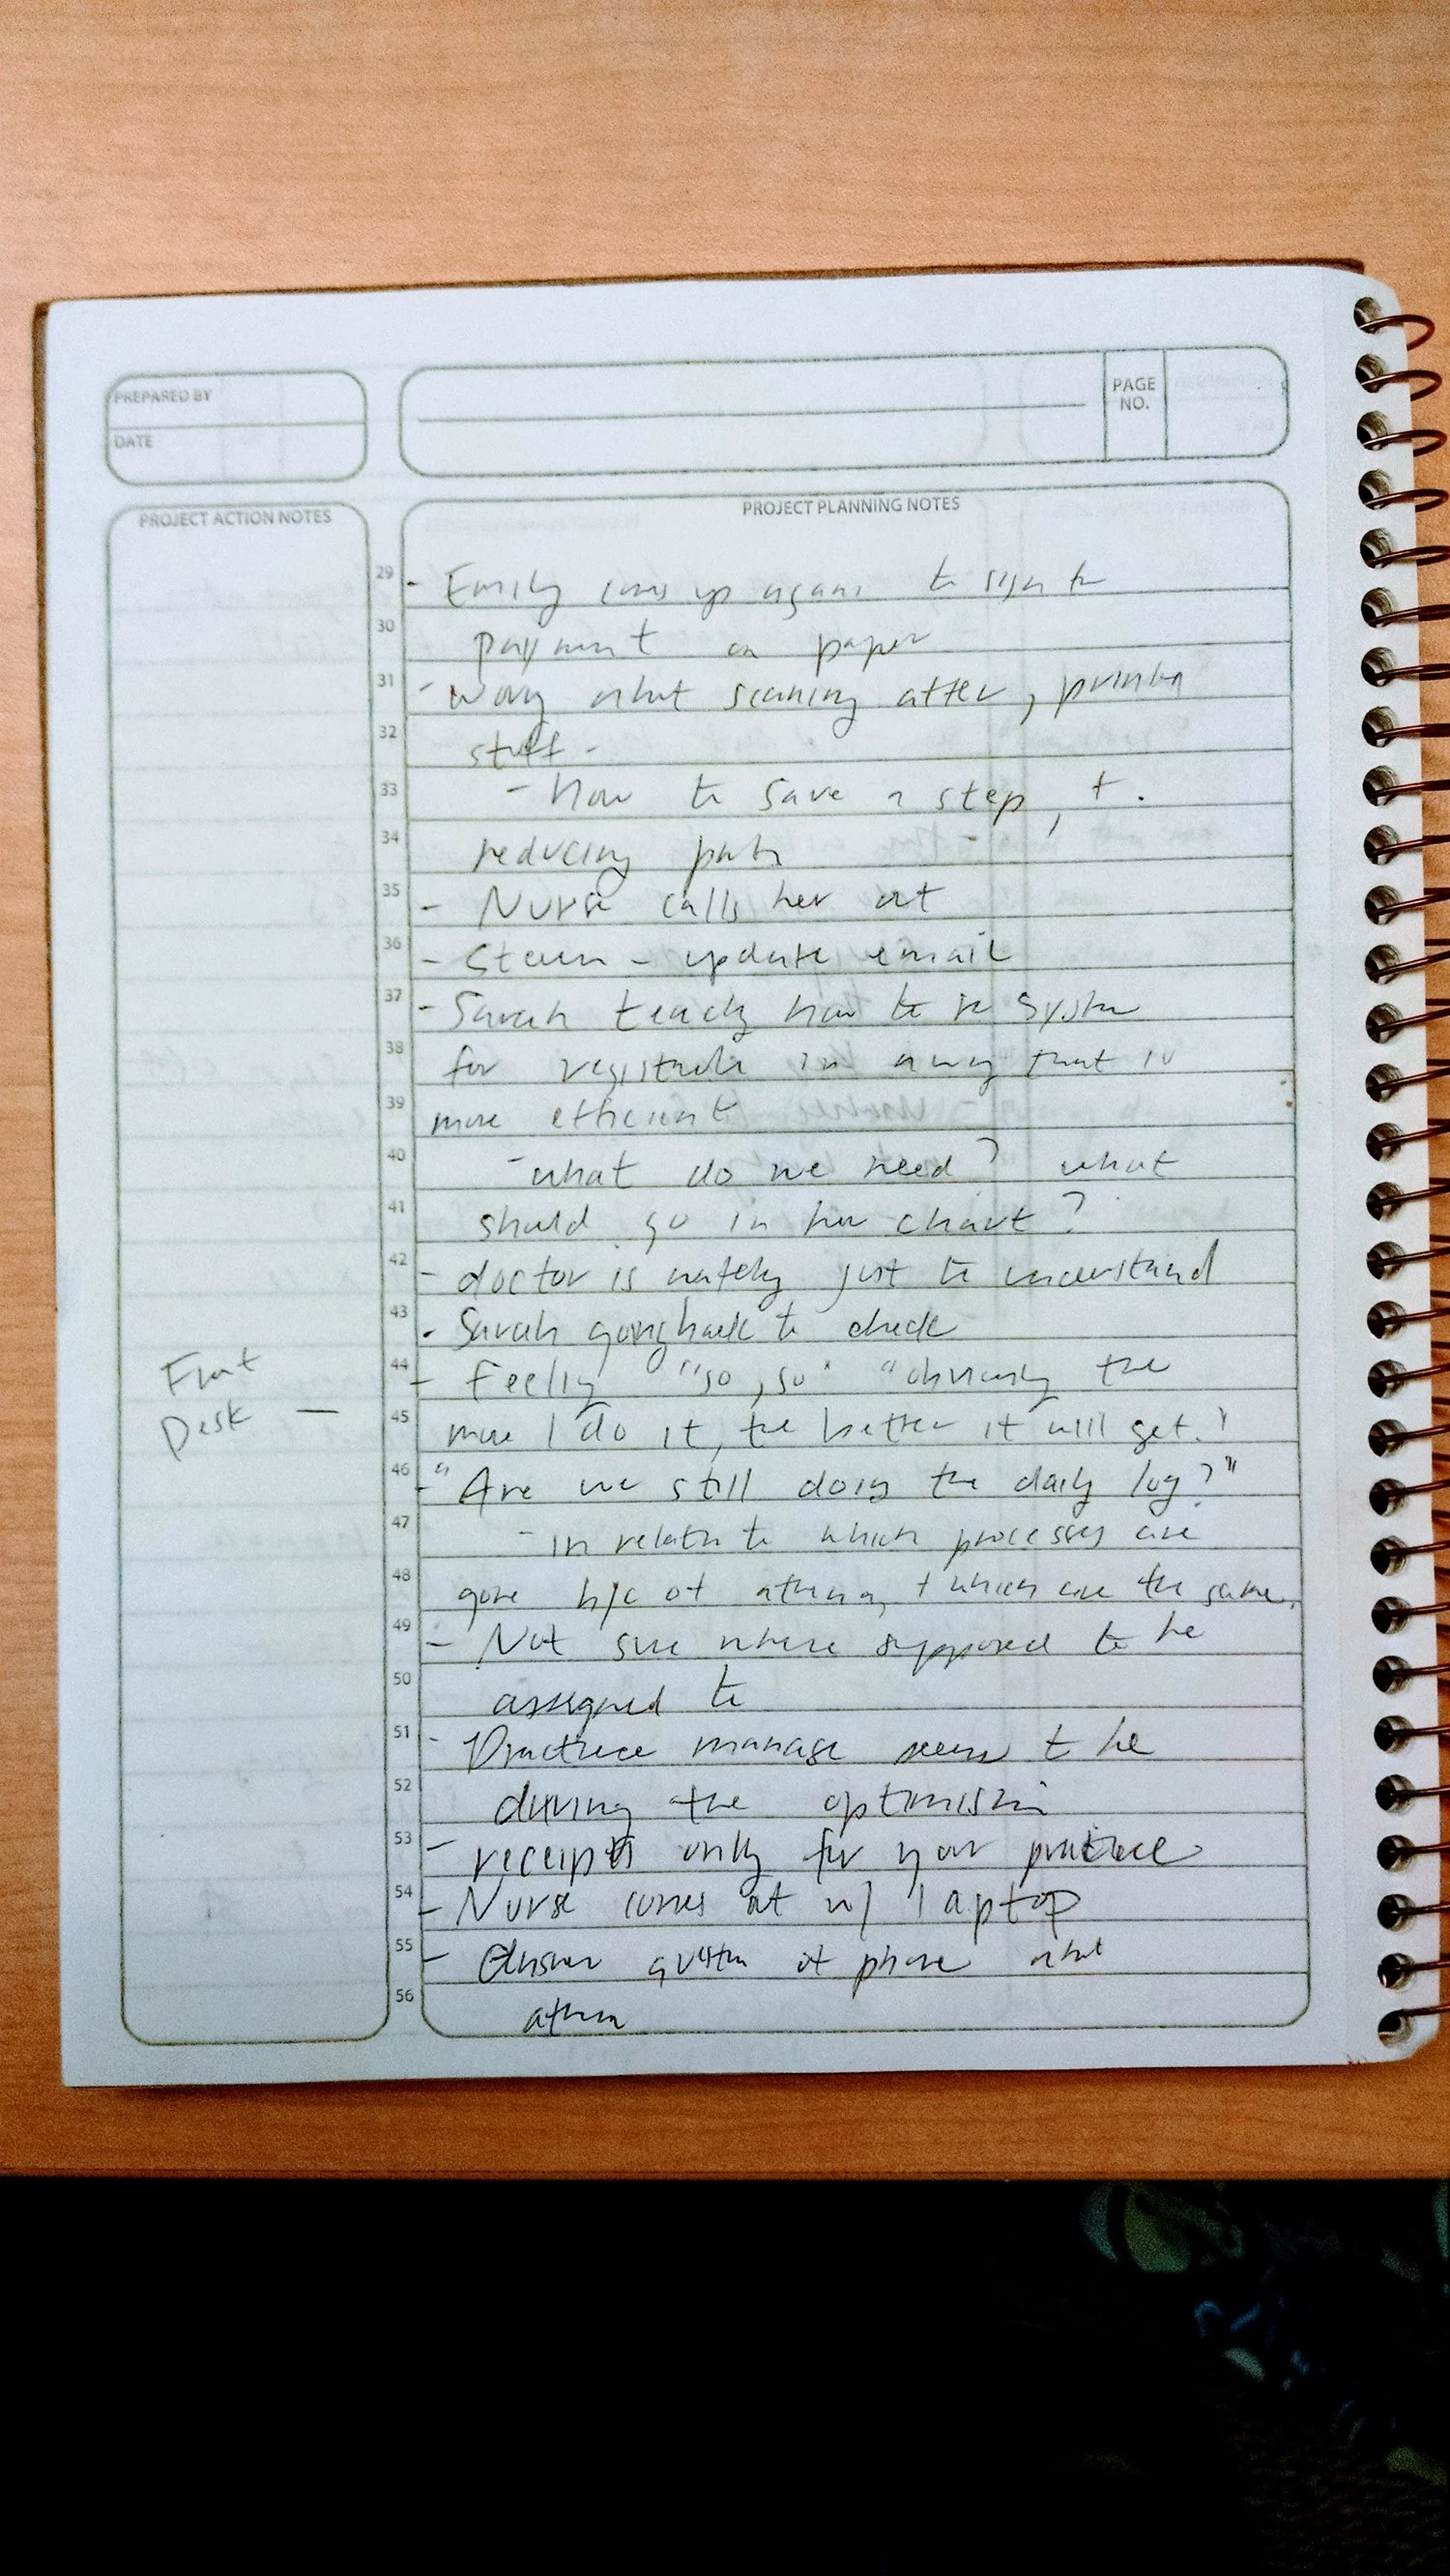 PREPARED BY
DATE
PAGE
NO.
PROJECT ACTION NOTES
PROJECT PLANNING NOTES
29 - Emily comes up again to sign
30 payment on paper
31 - scanning after,
32 stuff -
33 - how to save a step, +
34 reducing
35 - Nurse calls her out
36 - update email
37 - Sarah how to system
38 for in a way that is
39 more efficient
40 - what do we need? what
41 should go in her chart?
42 - doctor is just to understand
43 - Sarah going back to check
44 - Feeling "so, so" "obviously the
Front
Desk —
45 more I do it, the better it will get."
46 - "Are we still doing the daily log?"
47 - in relation to which processes are
48 gone b/c of athena, + which are the same.
49 - Not sure where supposed to be
50 assigned to
51 - Practice manage seems to be
52 driving the
53 - receipts only for your practice
54 - Nurse comes out w/ laptop
55 - Answer question phone about
56 athena